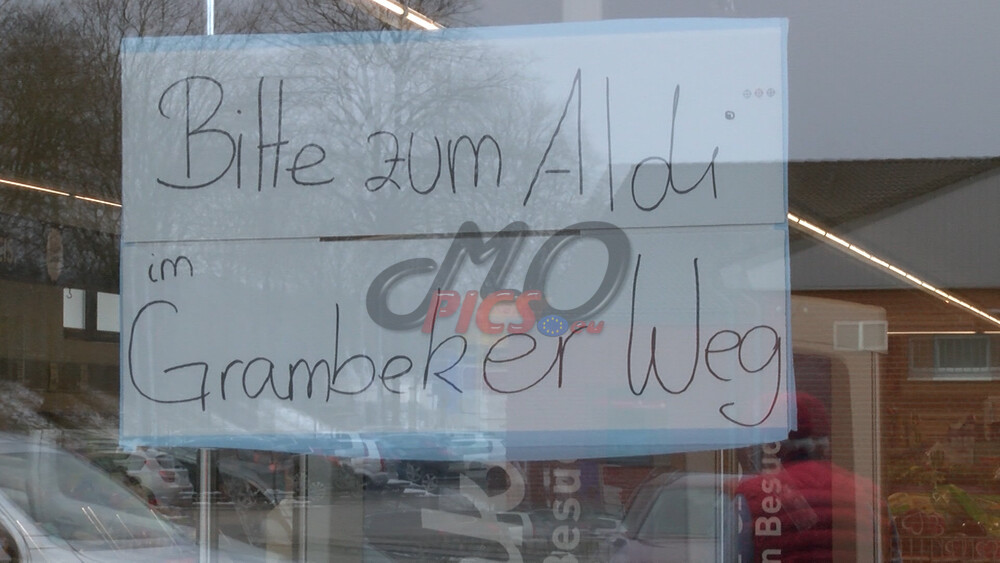 Bitte zum Aldi
im
Grambeker Weg
MO
PICS.eu
Besu
n Besuc